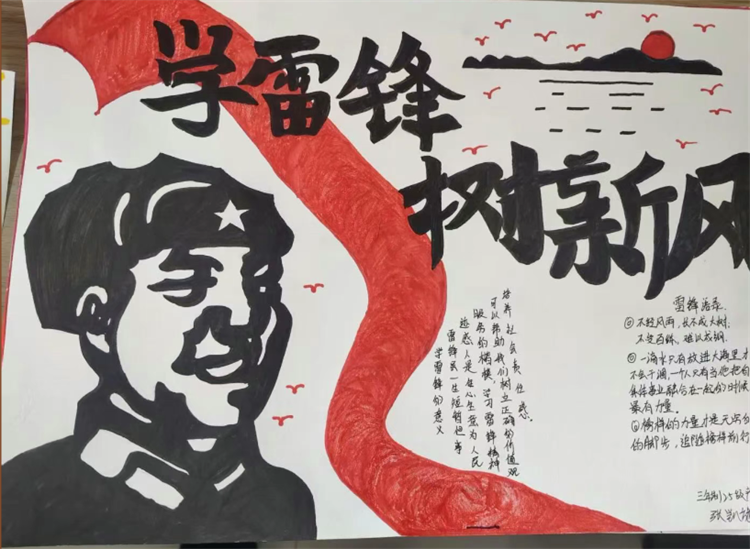 学雷锋
树新风
学雷锋的意义
雷锋一生短暂但事
迹感人是全心全意为人民
服务的楷模,学习雷锋精神
可以帮助我们树立正确的价值观
培养社会责任感。
雷锋语录.
①不经风雨,长不成大树;
不受百炼,难以成钢。
②一滴水只有放进大海里才
不会干涸,一个人只有当他把自
集体事业融合在一起的时候
最有力量。
③榜样的力量才是无
的脚步,追随榜样前行
三年制25
张